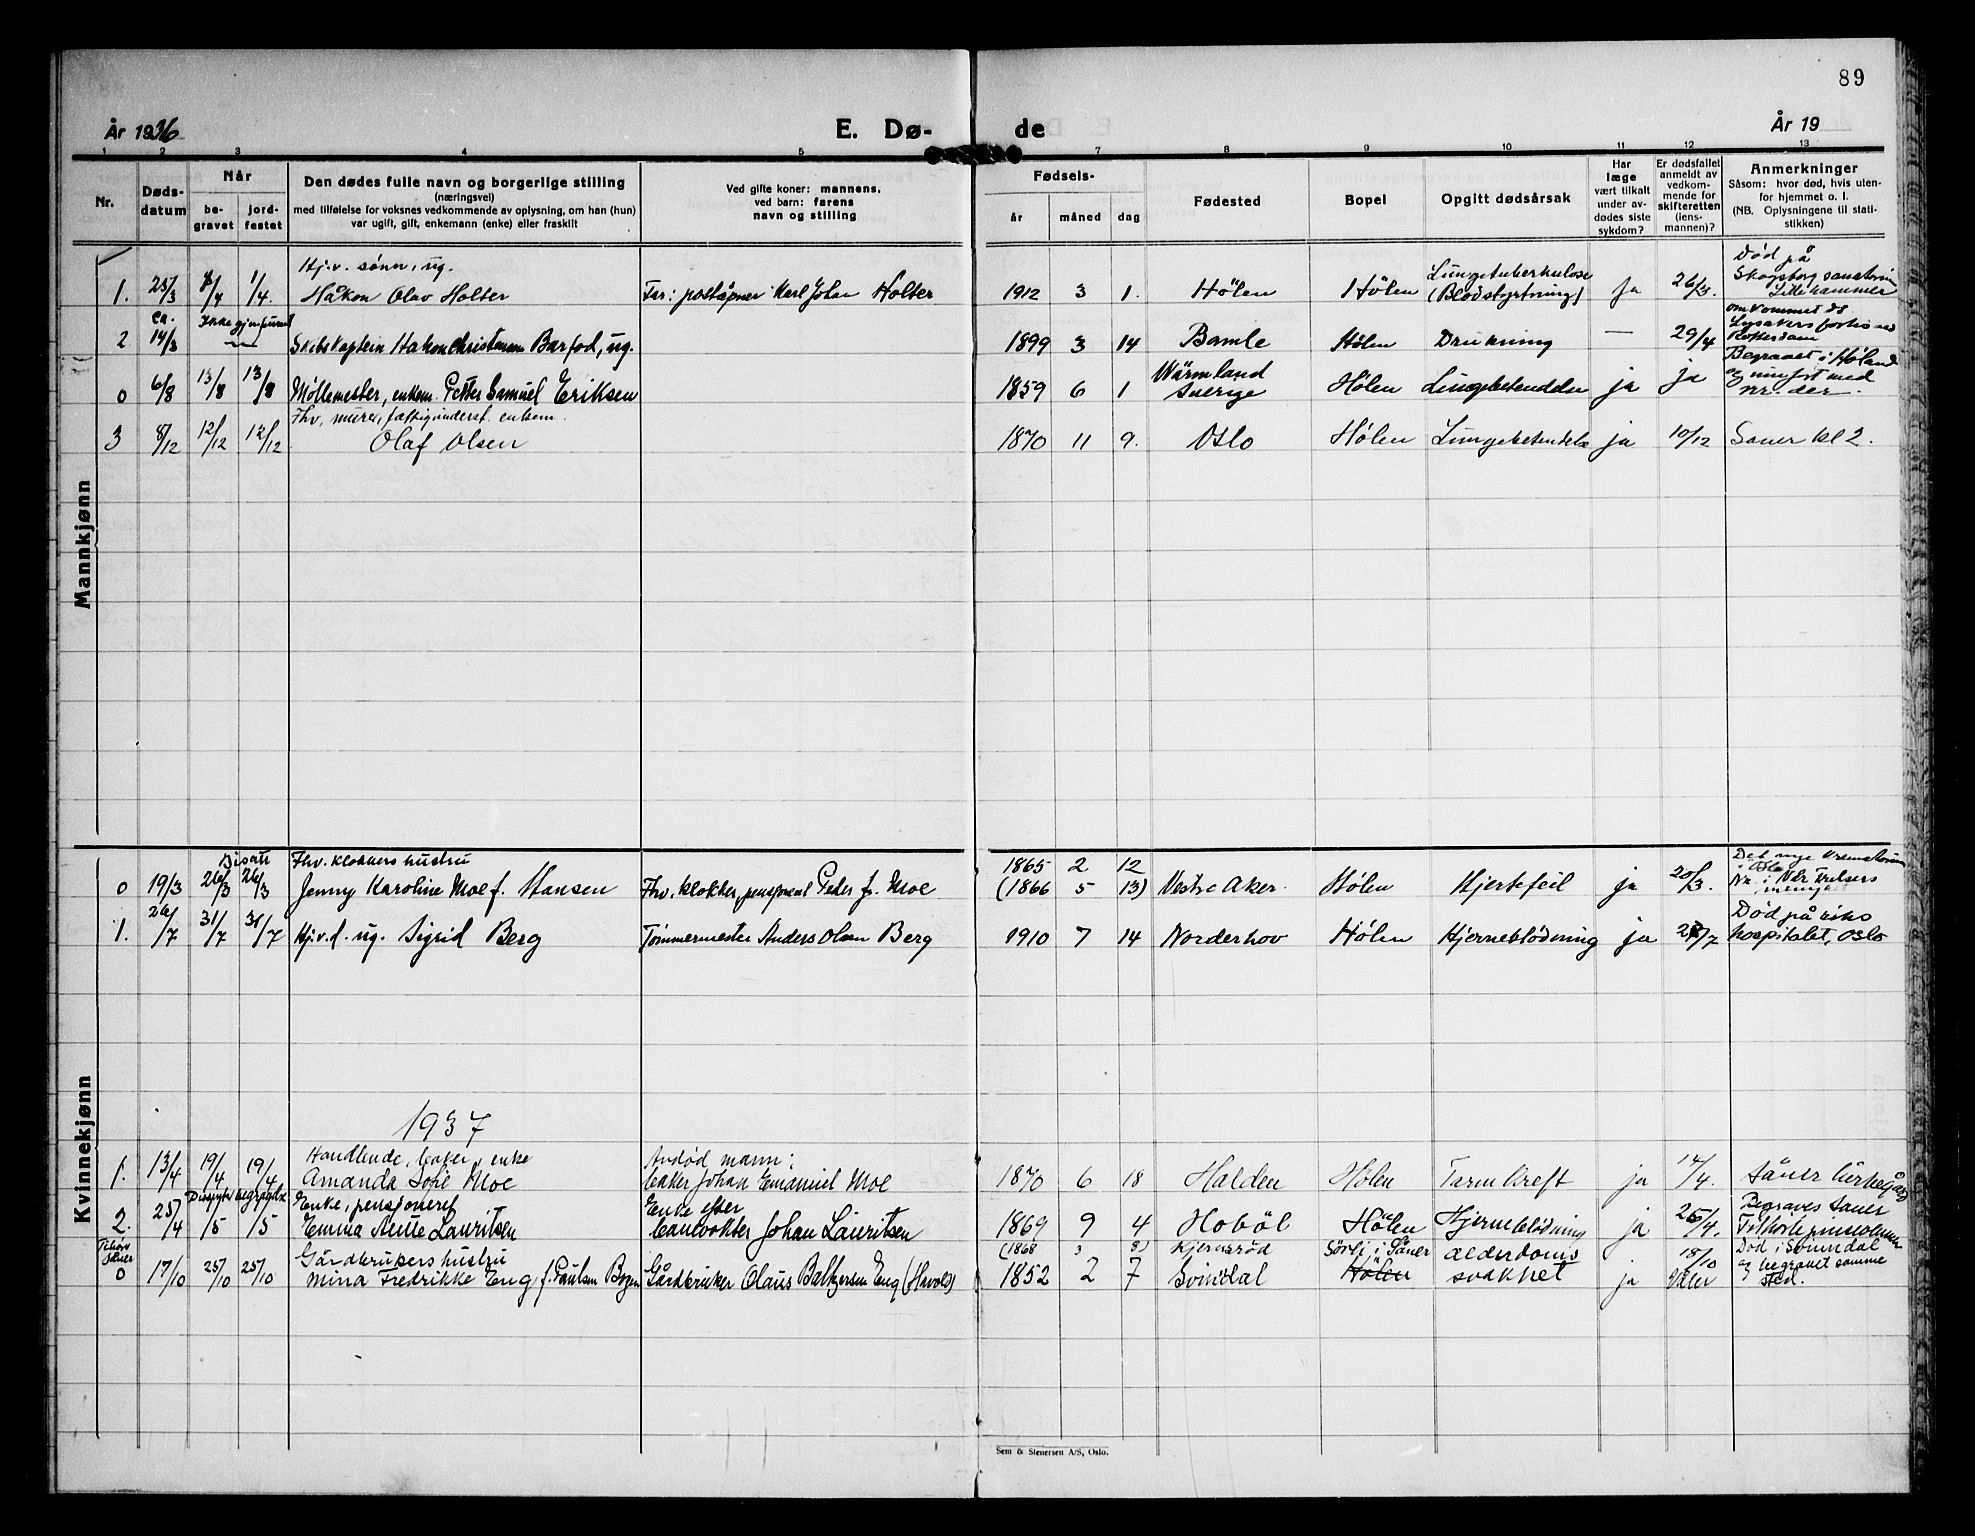 89
År 1936
E. Dø-
de
År 19
1 2 3 4 5 7 8 9 10 11 12 13
Nr.
Døds-
datum
Når
be-
gravet
jord-
festet
Den dødes fulle navn og borgerlige stilling
(næringsvei)
med tilføielse for voksnes vedkommende av oplysning, om han (hun)
var ugift, gift, enkemann (enke) eller fraskilt
Ved gifte koner: mannens,
ved barn: farens
navn og stilling
Fødsels-
år måned dag
Fødested
Bopel
Opgitt dødsårsak
Har
læge
vært tilkalt
under av-
dødes siste
sykdom?
Er dødsfallet
anmeldt av
vedkom-
mende for
skifteretten
(lens-
mannen)?
Anmerkninger
Såsom: hvor død, hvis uten-
for hjemmet o. l.
(NB. Oplysningene til stati-
stikken)
Mannkjønn
Hj.v. sønn, ug.
1. 25/3 /4 1/4. Håkon Olav Holter Far: poståpner Karl Johan Holter 1912 3 1. Hölen Hölen Lungetuberkulose (Blodstyrtning) Ja 26/3. Død på Skogsborg sanatorium Lillehammer
ca. Ikke gjenfunnet
2 14/3 Skibskaptein Hakon Christensen Barfod, ug. 1899 3 14 Bamle Hølen Drukning — 29/4 omkommet ds Lysakers forlis ved Rotterdam
0 6/8 13/8 13/8 Møllemester, enkem. Petter Samuel Eriksen 1859 6 1 Wärmland Sverige Hölen Lungebetendelse ja ja Begravet i Høland og innført med nr. der.
Fhv. murer, fattigunderst. enkem.
3 8/12 12/12 12/12 Olaf Olsen 1870 11 9. Oslo Hølen Lungebetendelse ja 10/12 Saner kl 2.
Kvinnekjønn
Bisatt Fhv. klokkers hustru
0 19/3 26/3 26/3 Jenny Karoline Moe f. Hansen Fhv. klokker, pensjonert Peder J. Moe 1865 2 12 (1866 5 13) Vestre Aker Hølen Hjertefeil ja 20/3. Det nye krematorium i Oslo Nr. i Vår Frelsers menigh
1. 26/7 31/7 31/7 Hj.v.d. ug. Sigrid Berg Tømmermester Anders Olsen Berg 1910 7 14 Norderhov Hølen Hjerneblödning ja 2/7 Død på Riks hospitalet, Oslo
1937
Handlende, baker, enke Avdød mann:
1. 13/4 19/4 19/4 Amanda Sofie Moe baker Johan Emanuel Moe 1870 6 18 Halden Hölen Tarmkreft ja 14/4. Såner kirkegård
Enke, pensjoneret Enke efter
2. 25/4 /5 /5 Emma Lauritsen banvokter Johan Lauritsen 1869 9 4 Hobøl Hølen Hjerneblödning ja 25/4. Begraves Saner
Gårdbrukers hustru (1868 3 8) Kjernsrød Sörli i Såner alderdoms
0 17/10 25/10 25/10 Mina Fredrikke Eng f. Paulsen Gårdbruker Olaus Baltzersen Eng (Havold) 1852 2 7 Svindal Hölen svakhet ja 18/10 Våler Död i Svinndal og begravet samme sted.
Sem & Stenersen A/S, Oslo.